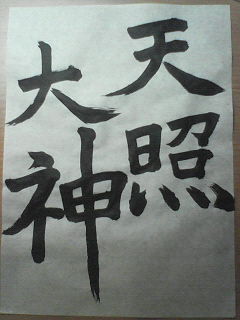 天照
大神